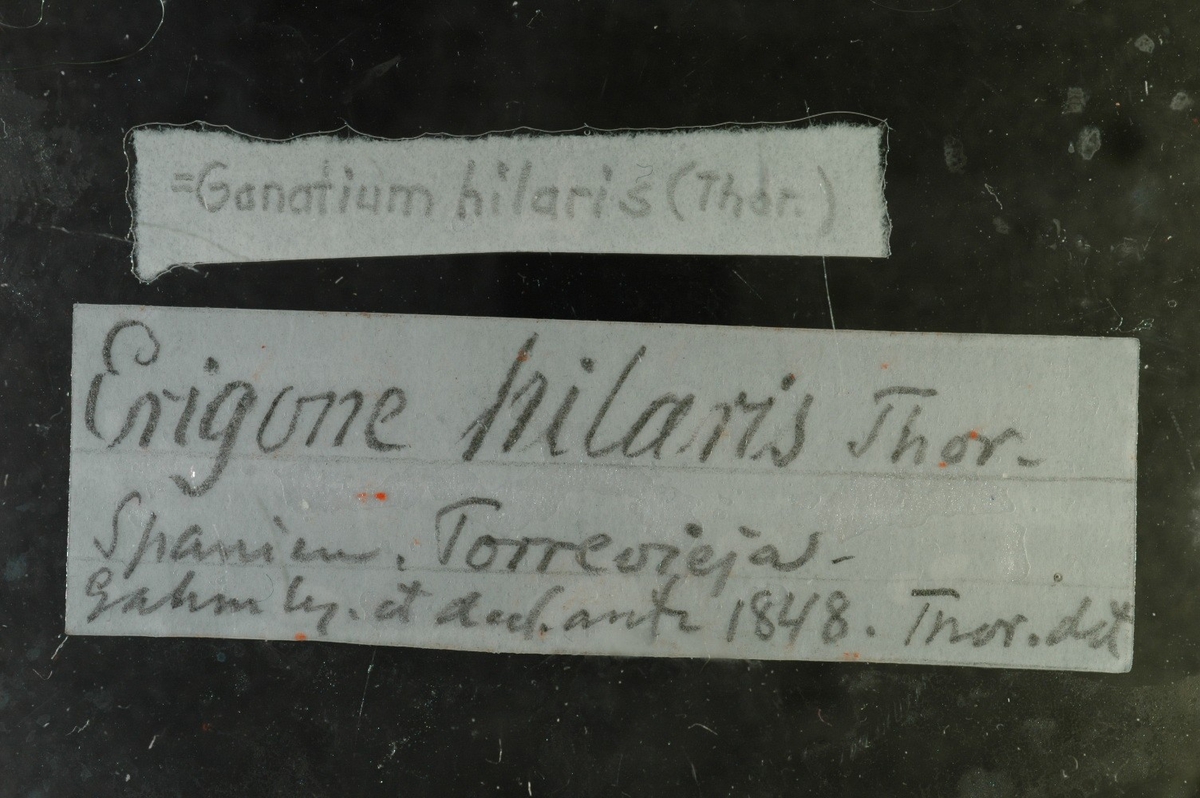 =Gonatium hilaris (Thor.)
Erigone hilaris Thor.
Spanien. Torrevieja.
Gahm leg. et ded. ante 1848. Thor. det